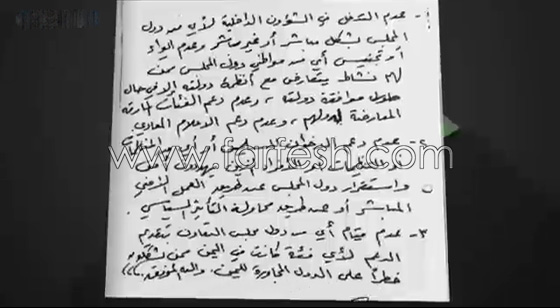 ١- عدم التدخل في الشؤون الداخلية لأي من دول
المجلس بشكل مباشر أو غير مباشر وعدم إيواء
أو تجنيس أي من مواطني دول المجلس ممن
لهم نشاط يتعارض مع أنظمة دولته إلا في حال
موافقة دولته، وعدم دعم الفئات المارقة
المعارضة لدولهم، وعدم دعم الإعلام المعادي.
٢- عدم دعم الإخوان المسلمين أو أي من المنظمات
أو التنظيمات أو الأفراد الذين يهددون أمن
واستقرار دول المجلس عن طريق العمل الأمني
المباشر أو عن طريق محاولة التأثير السياسي.
٣- عدم قيام أي من دول مجلس التعاون بتقديم
الدعم لأي فئة كانت في اليمن ممن يشكلون
خطراً على الدول المجاورة لليمن. والله الموفق،،،
www.farfesh.com